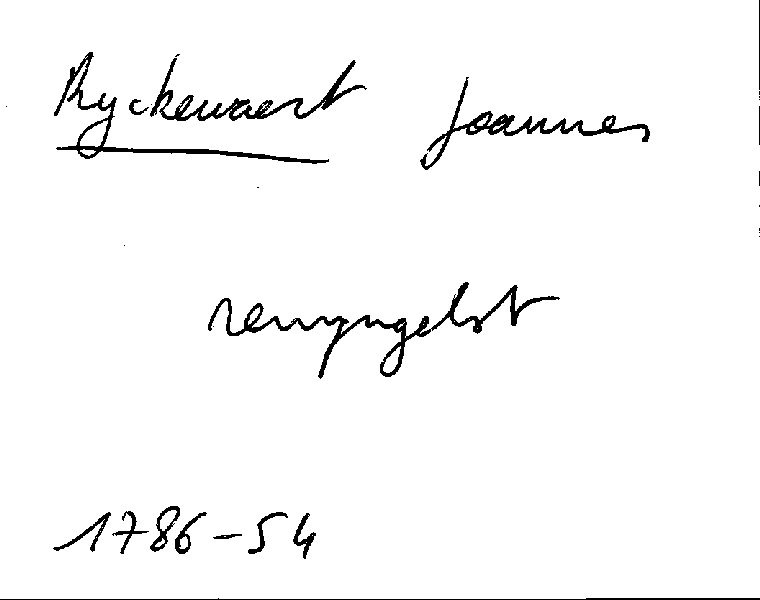 Ryckewaert Joannes
renyngelst
1786-54